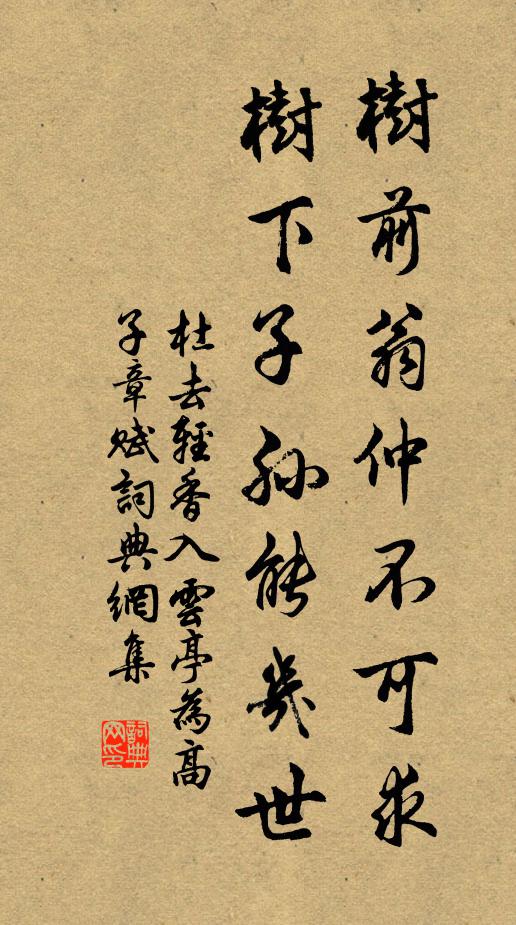 樹前翁仲不可求
樹下子孫能幾世
杜去輕香入雲亭為高
子章賦詞典網集
詞典
网印